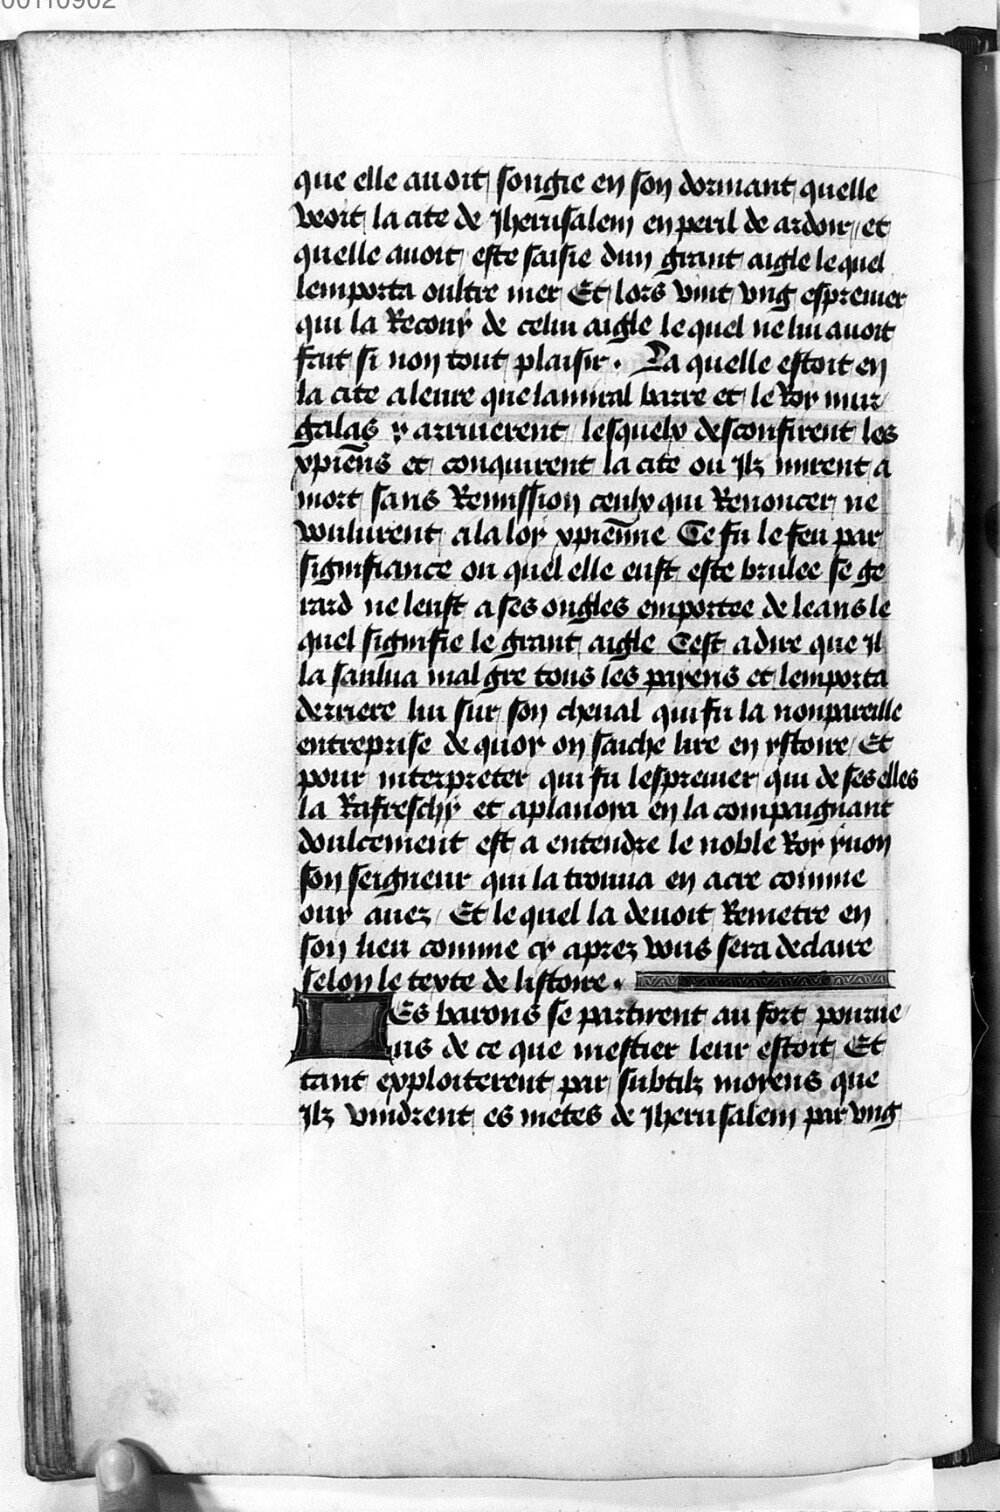 00110902
que elle auoit songie en son dormant quelle
veoit la cite de Jherusalem en peril de ardoir, et
quelle auoit este saisie dun grant aigle le quel
lemporta oultre mer Et lors vint vng espreuier
qui la Recouy de celui aigle le quel ne lui auoit
fait si non tout plaisir. La quelle estoit en
la cite a leure que lamiral barre et le Roy mur
galas y arriuerent lesquelx desconfirent les
xpiens et conquirent la cite ou Ilz mirent a
mort sans Remission ceulx qui Renoncer ne
voulurent a la loy xpienne Ce fu le feu par
signifiance ou quel elle eust este brulee se ge
rard ne leust a ses ongles emportee de leans le
quel signifie le grant aigle Cest a dire que Il
la saulua mal gre tous les payens et lemporta
derriere lui sur son cheual qui fu la nonpareille
entreprise de quoy on saiche lire en ystoire Et
pour interpreter qui fu lespreuier qui de ses elles
la Rafreschy et aplanoya en la compaignant
doulcement est a entendre le noble Roy yuon
son seigneur qui la trouua en acre comme
ouy auez Et le quel la deuoit Remetre en
son lieu comme cy aprez vous sera declaire
selon le texte de listoire.
LEs barons se partirent au fort pourue
us de ce que mestier leur estoit Et
tant exploiterent par subtilz moyens que
Ilz vindrent es metes de Jherusalem par vng